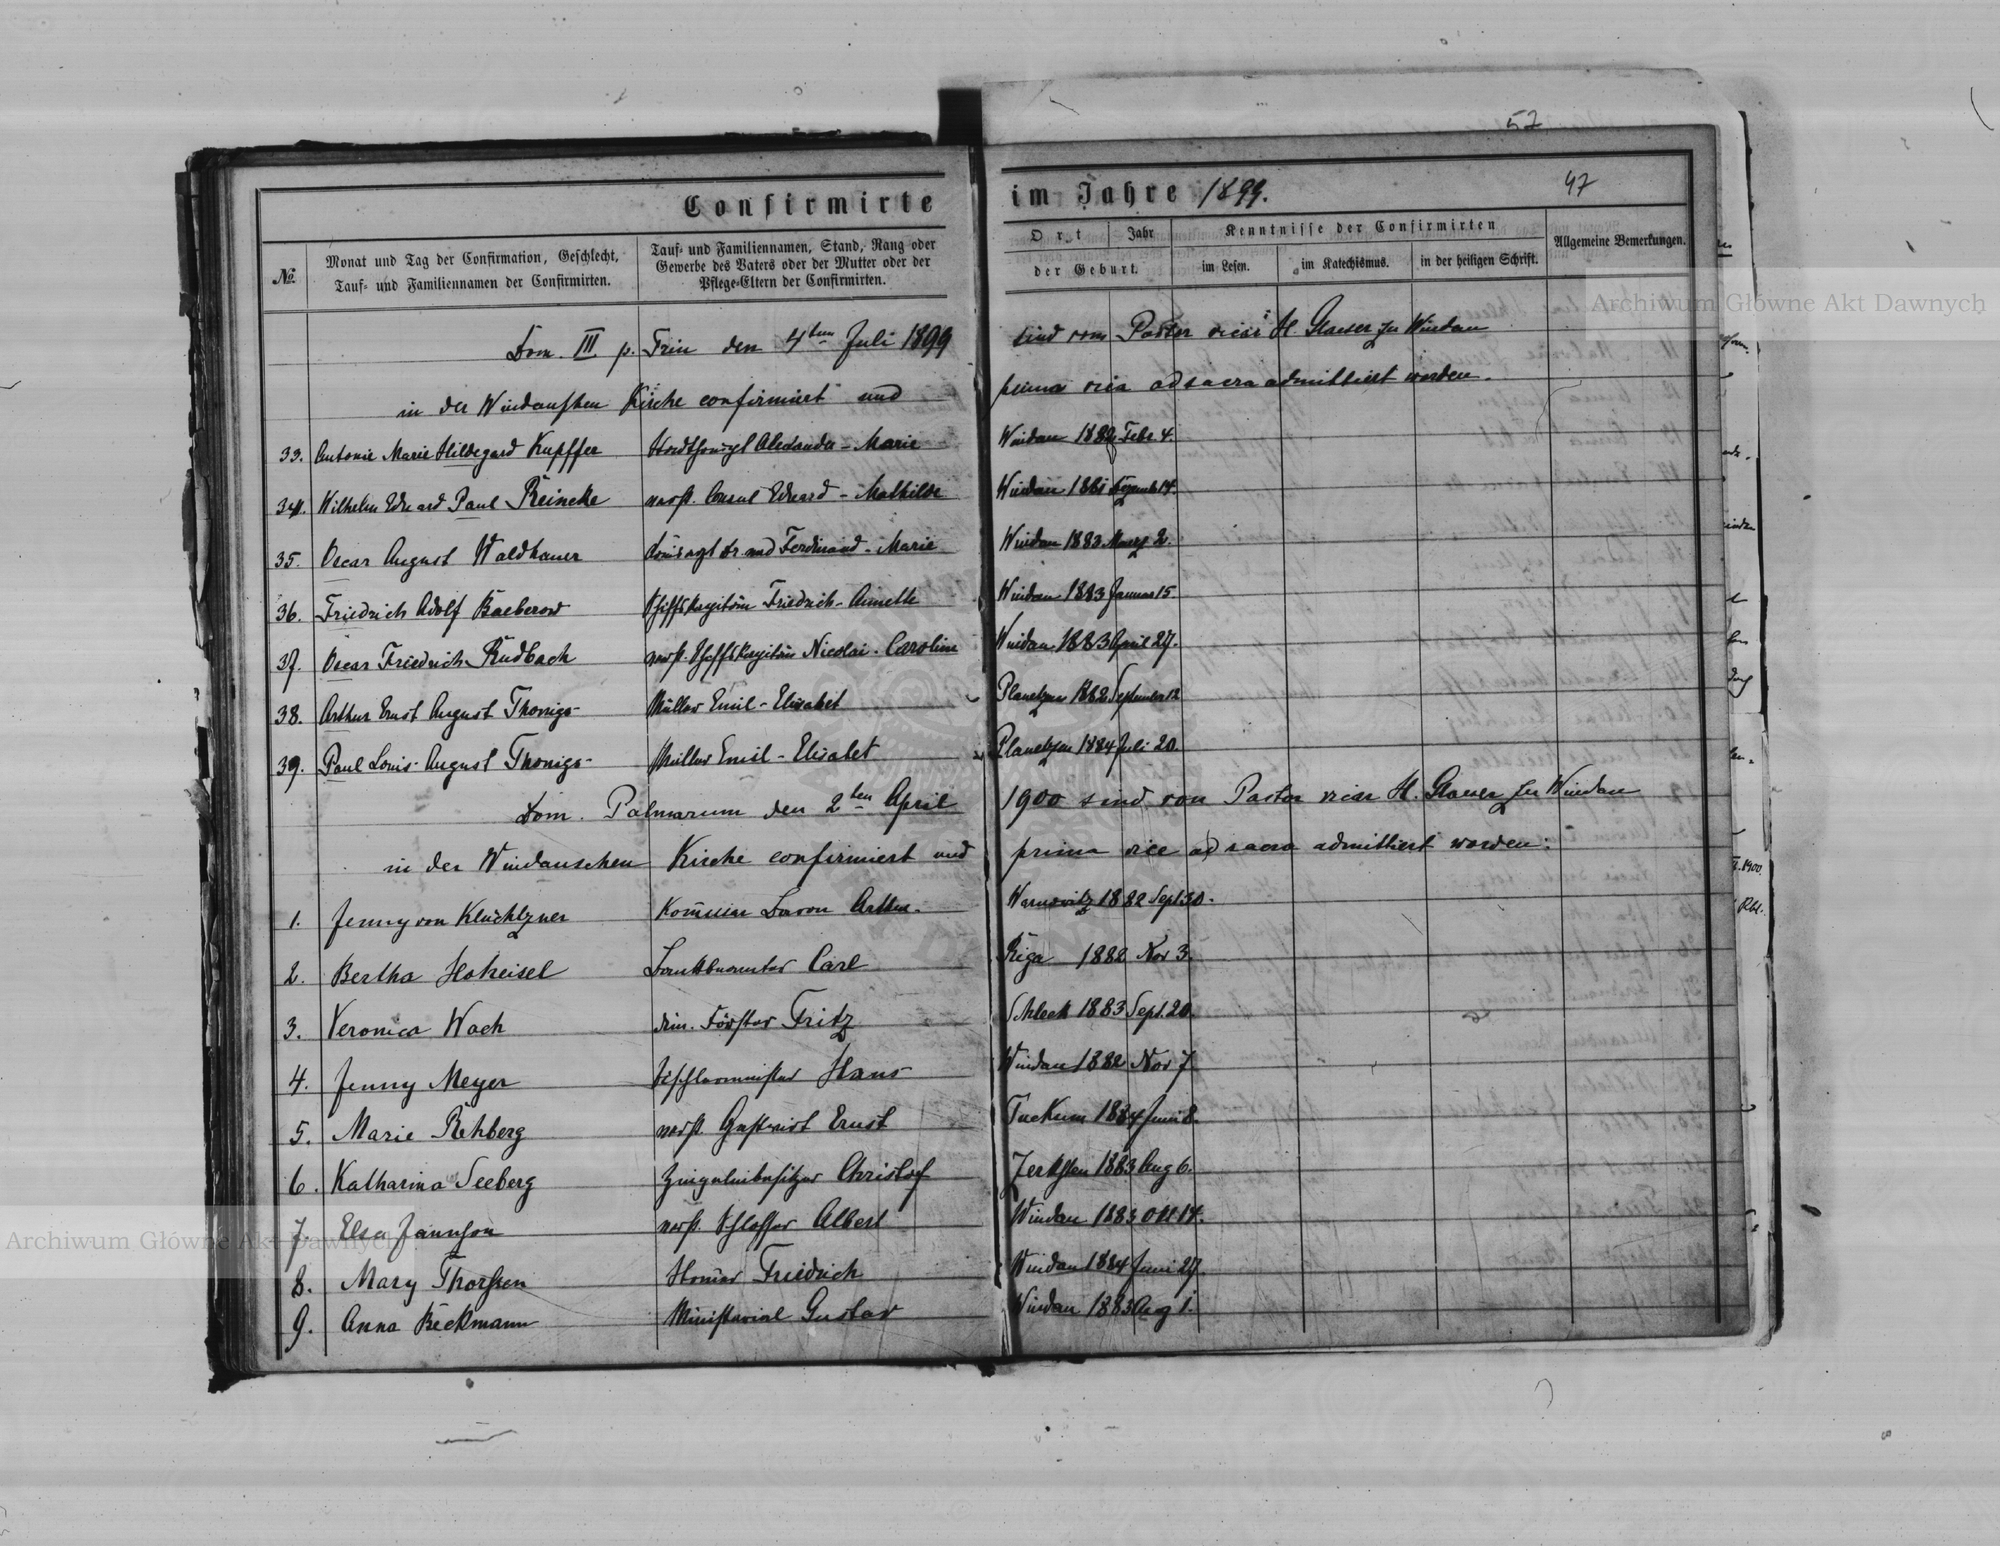 57
47
Confirmirte im Jahre 1899.
№ Monat und Tag der Confirmation, Geschlecht, Tauf- und Familiennamen der Confirmirten.
Tauf- und Familiennamen, Stand, Rang oder Gewerbe des Vaters oder der Mutter oder der Pflege-Eltern der Confirmirten.
Ort Jahr der Geburt.
Kenntnisse der Confirmirten
im Lesen. im Katechismus. in der heiligen Schrift.
Allgemeine Bemerkungen.
Dom. III p. Trin den 4ten Juli 1899 sind vom Pastor vicar H. Glaeser zu Windau
in der Windauschen Kirche confirmiert und prima vice ad sacra admittiert worden.
33. Antonie Marie Hildegard Kupffer Alexander - Marie Windau 1882 Febr 4.
34. Wilhelm Eduard Paul Reincke verst. Consul Eduard - Mathilde Windau 1881 14.
35. Oscar August Waldhauer Ferdinand - Marie Windau 1883 März 2.
36. Friedrich Adolf Baeberow Schiffskapitän Friedrich - Annette Windau 1883 Januar 15.
37. Oscar Friedrich Rudbach verst. Schiffskapitän Nicolai - Caroline Windau 1883 April 27.
38. Arthur Ernst August Thonigs - Müller Emil - Elisabet Planetzen 1882 September 12
39. Paul Louis August Thonigs - Müller Emil - Elisabet Planetzen 1884 Juli 20.
Dom. Palmarum den 2ten April 1900 sind von Pastor vicar H. Glaeser zu Windau
in der Windauschen Kirche confirmiert und prima vice ad sacra admittiert worden:
1. Jenny von Kluchtzner Baron Arthur. Warwitz 1882 Sept 30.
2. Bertha Hokeisel Bankbeamter Carl Riga 1882 Nov 3.
3. Veronica Wach dim. Förster Fritz Schleck 1883 Sept. 20.
4. Jenny Meyer Tischlermeister Hans Windau 1882 Nov 7
5. Marie Rehberg verst. Gastwirt Ernst Tuckum 1884 Juni 8.
6. Katharina Seeberg Ziegeleibesitzer Christof 1883 Aug 6.
7. Elsa Jannson verst. Schlosser Albert Windau 1883 Oct 14.
8. Mary Thorssen Friedrich Windau 1884 Juni 27.
9. Anna Beckmann Ministerial Gustav Windau 1883 Aug 1.
Archiwum Główne Akt Dawnych
Archiwum Główne Akt Dawnych